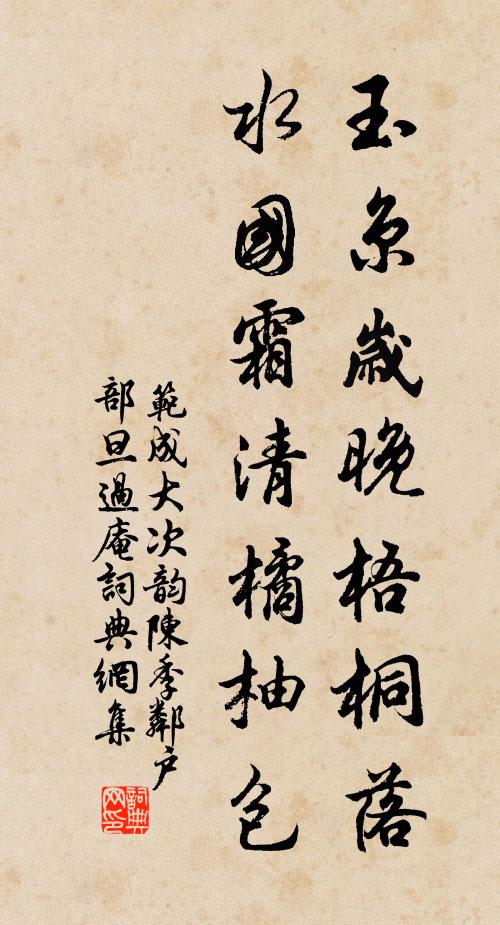 玉京歲晚梧桐落
水國霜清橘柚包
範成大次韵陳季鄰户
部旦過庵詞典網集
詞典
网印